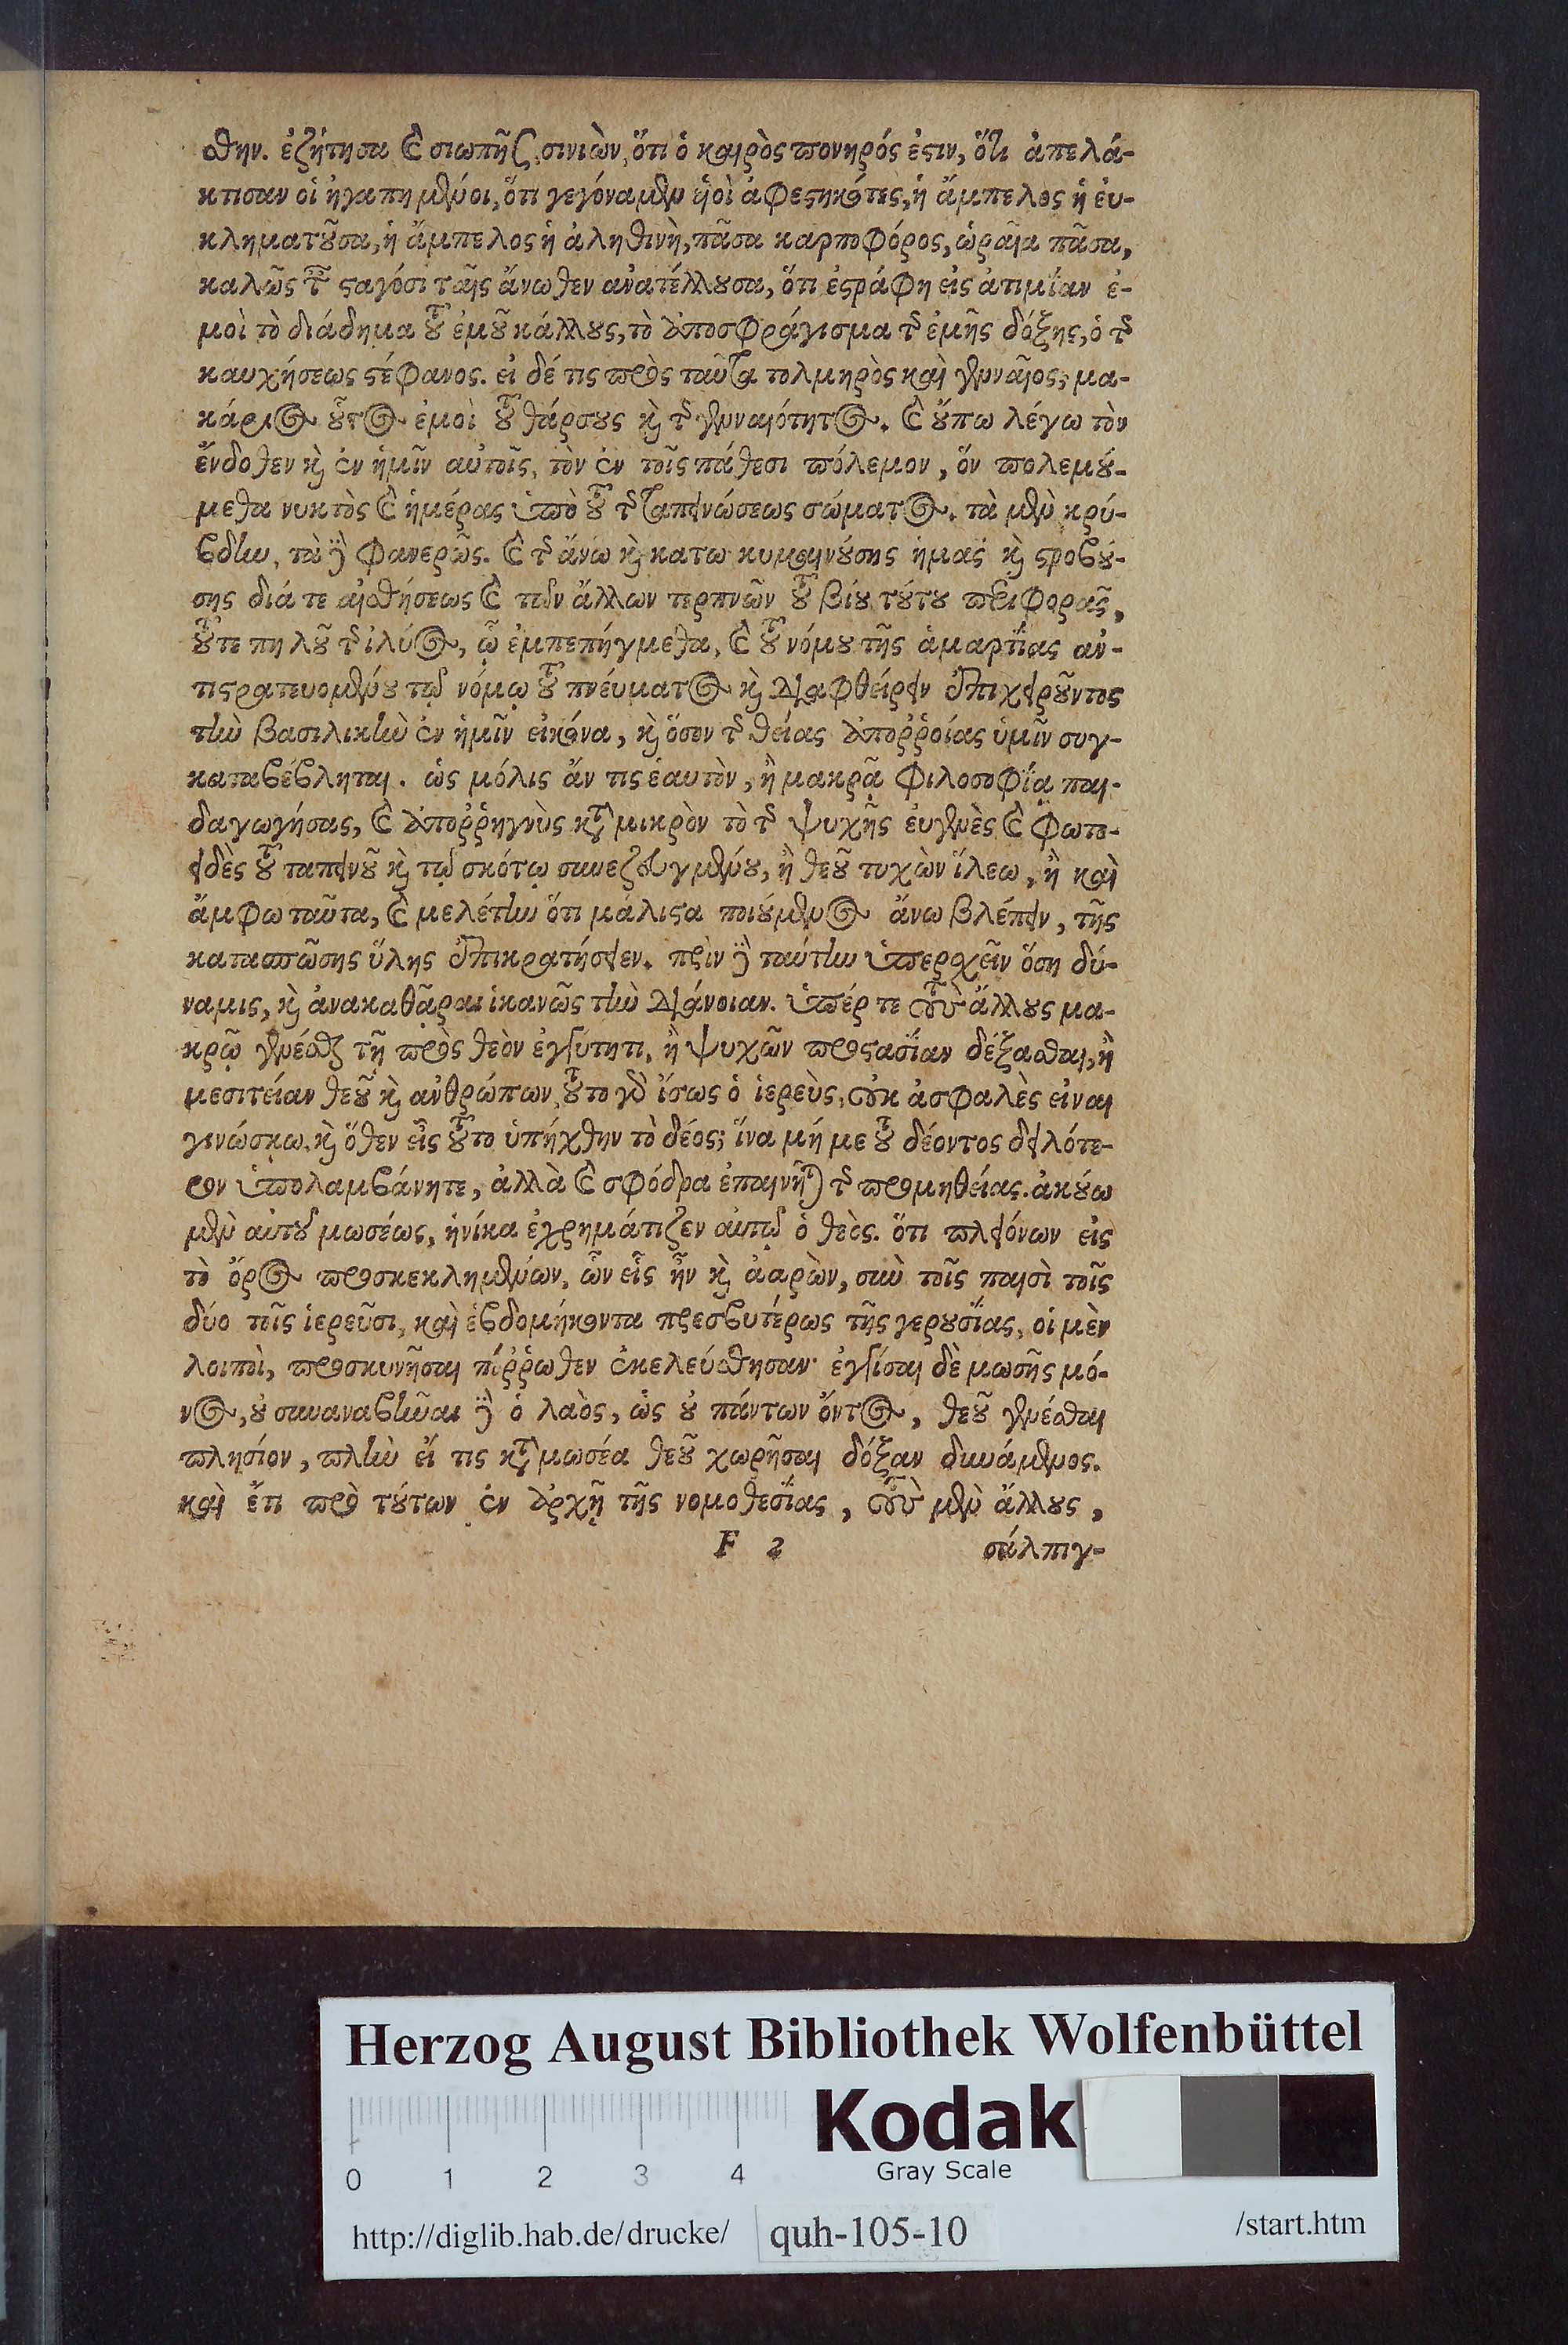 θην. ἐζήτησα καὶ σιωπῆσαι, σινιὼν, ὅτι ὁ καιρὸς πονηρός ἐστιν, ὅτι ἀπελά-
κτισαν οἱ ἠγαπημένοι, ὅτι γεγόναμεν ὑοὶ ἀφεστηκότες, ἡ ἄμπελος ἡ ἐυ-
κληματοῦσα, ἡ ἄμπελος ἡ ἀληθινὴ, πᾶσα καρποφόρος, ὡραῖα πᾶσα,
καλῶς ταῖς σταγόσι ταῖς ἄνωθεν ἀνατέλλουσα, ὅτι ἐστράφη εἰς ἀτιμίαν ἐ-
μοὶ τὸ διάδημα τοῦ ἐμοῦ κάλλους, τὸ ἀποσφράγισμα τῆς ἐμῆς δόξης, ὁ τῆς
καυχήσεως στέφανος. εἰ δέ τις πρὸς ταῦτα τολμηρὸς καὶ γενναῖος; μα-
κάριος οὗτος ἐμοὶ τοῦ θάρσους καὶ τῆς γενναιότητος. καὶ οὔπω λέγω τὸν
ἔνδοθεν καὶ ἐν ἡμῖν αὐτοῖς, τὸν ἐν τοῖς πάθεσι πόλεμον, ὅν πολεμού-
μεθα νυκτὸς καὶ ἡμέρας ὑπὸ τοῦ τῆς ταπεινώσεως σώματος. τὰ μὲν κρύ-
βδην, τὰ δὲ φανερῶς. καὶ τῆς ἄνω καὶ κατω κυμαινούσης ἡμας καὶ στροβού-
σης διά τε αἰσθήσεως καὶ τῶν ἄλλων τερπνῶν τοῦ βίου τούτου περιφορᾶς,
τοῦτε πηλοῦ τῆς ἰλύος, ᾧ ἐμπεπήγμεθα, καὶ τοῦ νόμου τῆς ἁμαρτίας ἀν-
τιστρατευομένου τῷ νόμῳ τοῦ πνέυματος καὶ διαφθείρειν ἐπιχειροῦντος
τὴν βασιλικὴν ἐν ἡμῖν εἰκόνα, καὶ ὅσον τῆς θείας ἀποῤῥοίας ὑμῖν συγ-
καταβέβληται. ὡς μόλις ἄν τις ἑαυτὸν, ἢ μακρᾷ φιλοσοφίᾳ παι-
δαγωγήσας, καὶ ἀποῤῥηγνὺς κατὰ μικρὸν τὸ τῆς ψυχῆς ἐυγενὲς καὶ φωτο-
ειδὲς τοῦ ταπεινοῦ καὶ τῷ σκότῳ συνεζευγμένου, ἢ θεοῦ τυχὼν ἵλεω, ἢ καὶ
ἄμφω ταῦτα, καὶ μελέτην ὅτι μάλιστα ποιούμενος ἄνω βλέπειν, τῆς
κατασπώσης ὕλης ἐπικρατήσειεν. πρὶν δὲ ταύτην ὑπερσχεῖν ὅση δύ-
ναμις, καὶ ἀνακαθᾶραι ἱκανῶς τὴν διάνοιαν. ὑπέρ τε τοὺς ἄλλους μα-
κρῷ γενέσθαι τῇ πρὸς θεὸν ἐγγύτητι, ἢ ψυχῶν προστασίαν δέξασθαι, ἢ
μεσιτείαν θεοῦ καὶ ἀνθρώπων, τοῦτο γὰρ ἴσως ὁ ἱερεὺς, οὐκ ἀσφαλὲς εἶναι
γινώσκω. καὶ ὅθεν εἰς τοῦτο ὑπήχθην τὸ δέος; ἵνα μή με τοῦ δέοντος δειλότε-
ρον ὑπολαμβάνητε, ἀλλὰ καὶ σφόδρα ἐπαινῆτε τῆς προμηθείας. ἀκούω
μὲν αὐτοῦ μωσέως, ἡνίκα ἐχρημάτιζεν αὐτῷ ὁ θεὸς. ὅτι πλειόνων εἰς
τὸ ὄρος προσκεκλημένων, ὧν εἷς ἦν καὶ ἀαρὼν, σὺν τοῖς παισὶ τοῖς
δύο τοῖς ἱερεῦσι, καὶ ἑβδομήκοντα πρεσβυτέρως τῆς γερουσίας, οἱ μὲν
λοιποὶ, προσκυνῆσαι πόῤῥωθεν ἐκελεύσθησαν· ἐγγίσαι δὲ μωσῆς μό-
νος, οὐ συναναβῆναι δὲ ὁ λαὸς, ὡς οὐ πάντων ὄντος, θεοῦ γενέσθαι
πλησίον, πλὴν εἴ τις κατὰ μωσέα θεοῦ χωρῆσαι δόξαν δυνάμενος.
καὶ ἔτι πρὸ τούτων ἐν ἀρχῇ τῆς νομοθεσίας, τοὺς μὲν ἄλλους,
F 2 σάλπιγ-
Herzog August Bibliothek Wolfenbüttel
Kodak
Gray Scale
0 1 2 3 4
http://diglib.hab.de/drucke/ quh-105-10 /start.htm